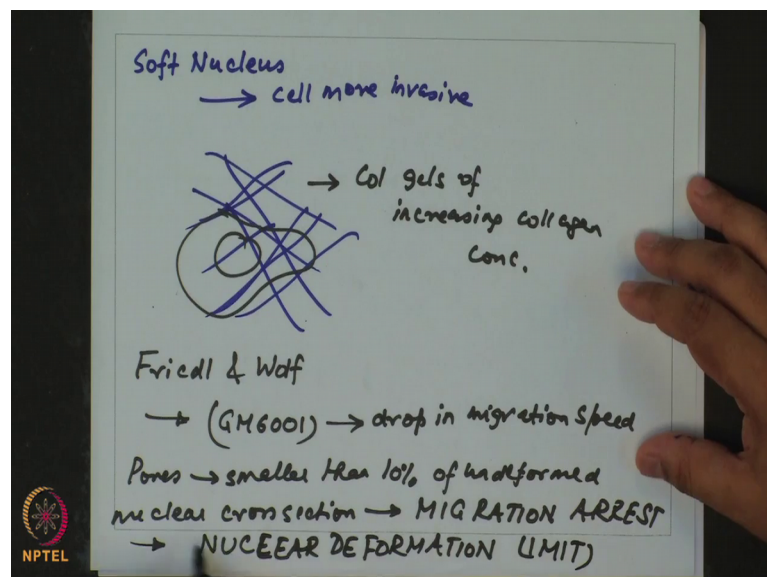 Soft Nucleus
→ cell more invasive
→ Col gels of
increasing collagen
conc.
Friedl & Wolf
→ (GM6001) → drop in migration speed
Pores → smaller than 10% of undeformed
nuclear crossection → MIGRATION ARREST
→ NUCEEAR DEFORMATION LIMIT)
NPTEL